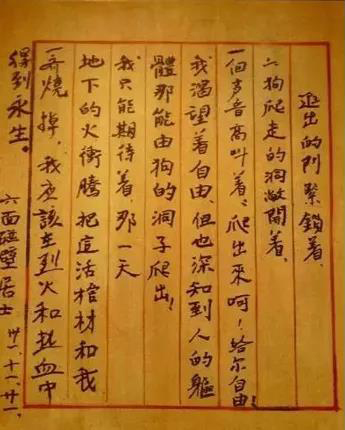 进出的門緊鎖着、
狗爬走的洞敞開着、
一個声音高叫着、爬出來呵！給尔自由！
我渴望着自由、但也深知到人的軀
體那能由狗的洞子爬出！
我只能期待着、那一天
地下的火衝騰把這活棺材和我
一齊燒掉、我应該在烈火和热血中
得到永生。
六面碰壁居士 卅一、十一、廿一、